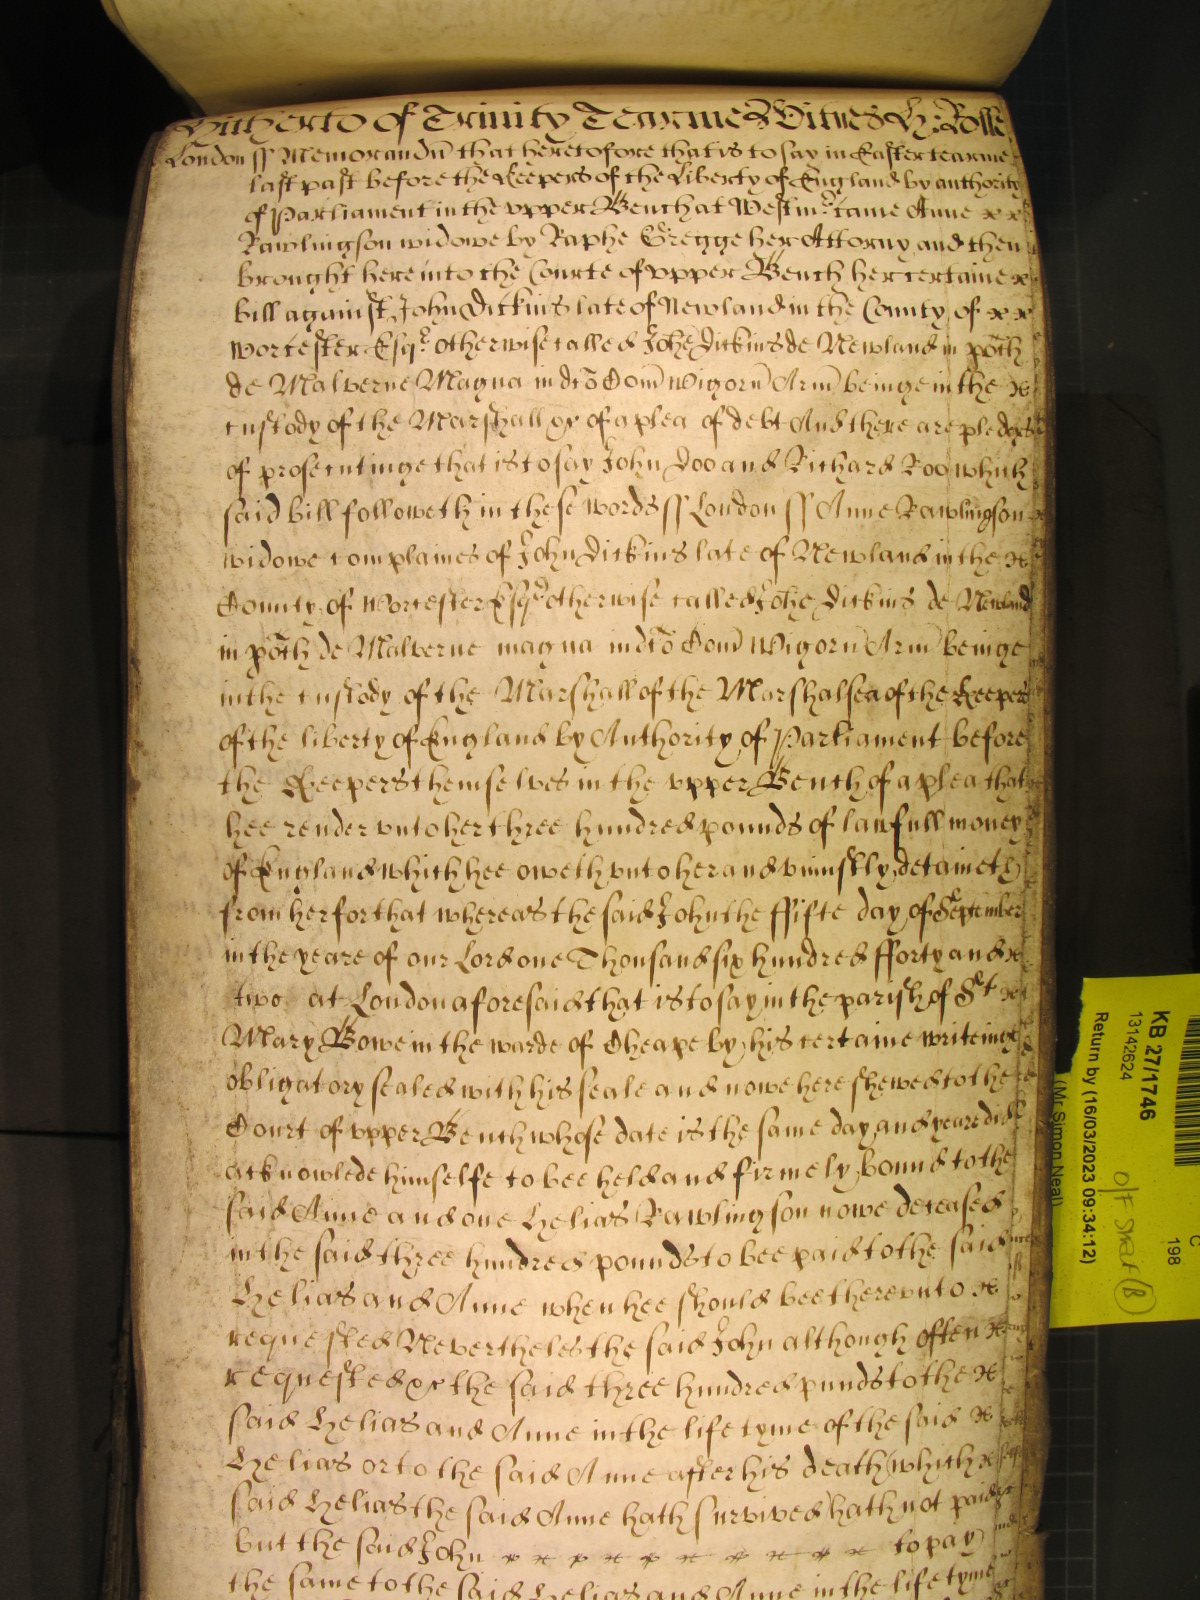 Hitherto of Trinity Tearme Witnes H: Rolle
London ss Memorandũ that heretofore that is to say in Easter tearme
last past before the Keepers of the Liberty of England by authority
of Parliament in the vpper Bench at Westmr came Anne x x
Rawlingson widowe by Raphe Gregge her Attorny and then
brought here into the Courte of vpper Bench her certaine x
bill against John Dickins late of Newland in the County of x x
Worcester Esqr otherwise called Johẽ Dickins de Newland in põch
de Malverne Magna in dcõ Com̃ Wigorñ Arm̃ beinge in the x
custody of the Marshall &c of a plea of debt And there are pledges
of prosecutinge that is to say John Doo and Richard Roo which
said bill followeth in these words ss London ss Anne Rawlingson
widowe complaines of John Dickins late of Newland in the x
County of Worcester Esqr otherwise called Johẽ Dickins de Newland
in põch de Malverne magna in dcõ Com̃ Wigorñ Arm̃ beinge
in the custody of the Marshall of the Marshalsea of the Keepers
of the liberty of England by Authority of Parliament before
the Keepers themselves in the vpper Bench of a plea that
hee render vnto her three hundred pounds of lawfull money
of England which hee oweth vnto her and vniustly detaineth
from her for that whereas the said John the ffifte day of September
in the yeare of our Lord one Thousand six hundred fforty and x
two at London aforesaid that is to say in the parish of St x
Mary Bowe in the warde of Cheape by his certaine writeinge
obligatory sealed with his seale and nowe here shewed to the
Court of vpper Bench whose date is the same day and yeare did
acknowlede himselfe to bee held and firmely bound to the
said Anne and one Helias Rawlingson nowe deceased
in the said three hundred pounds to bee paid to the said
Helias and Anne when hee should bee therevnto x
requested Nevertheles the said John although often x
requested &c the said three hundred punds to the x
said Helias and Anne in the life tyme of the said x
Helias or to the said Anne after his death (which x
said Helias the said Anne hath survived) hath not paid
but the said John x x x x x x x x x to pay
the same to the said Helias and Anne in the life tyme
KB 27/1746
13142624
Return by (16/03/2023 09:34:12)
(Mr Simon Neal)
C
198
O/F Street (B)